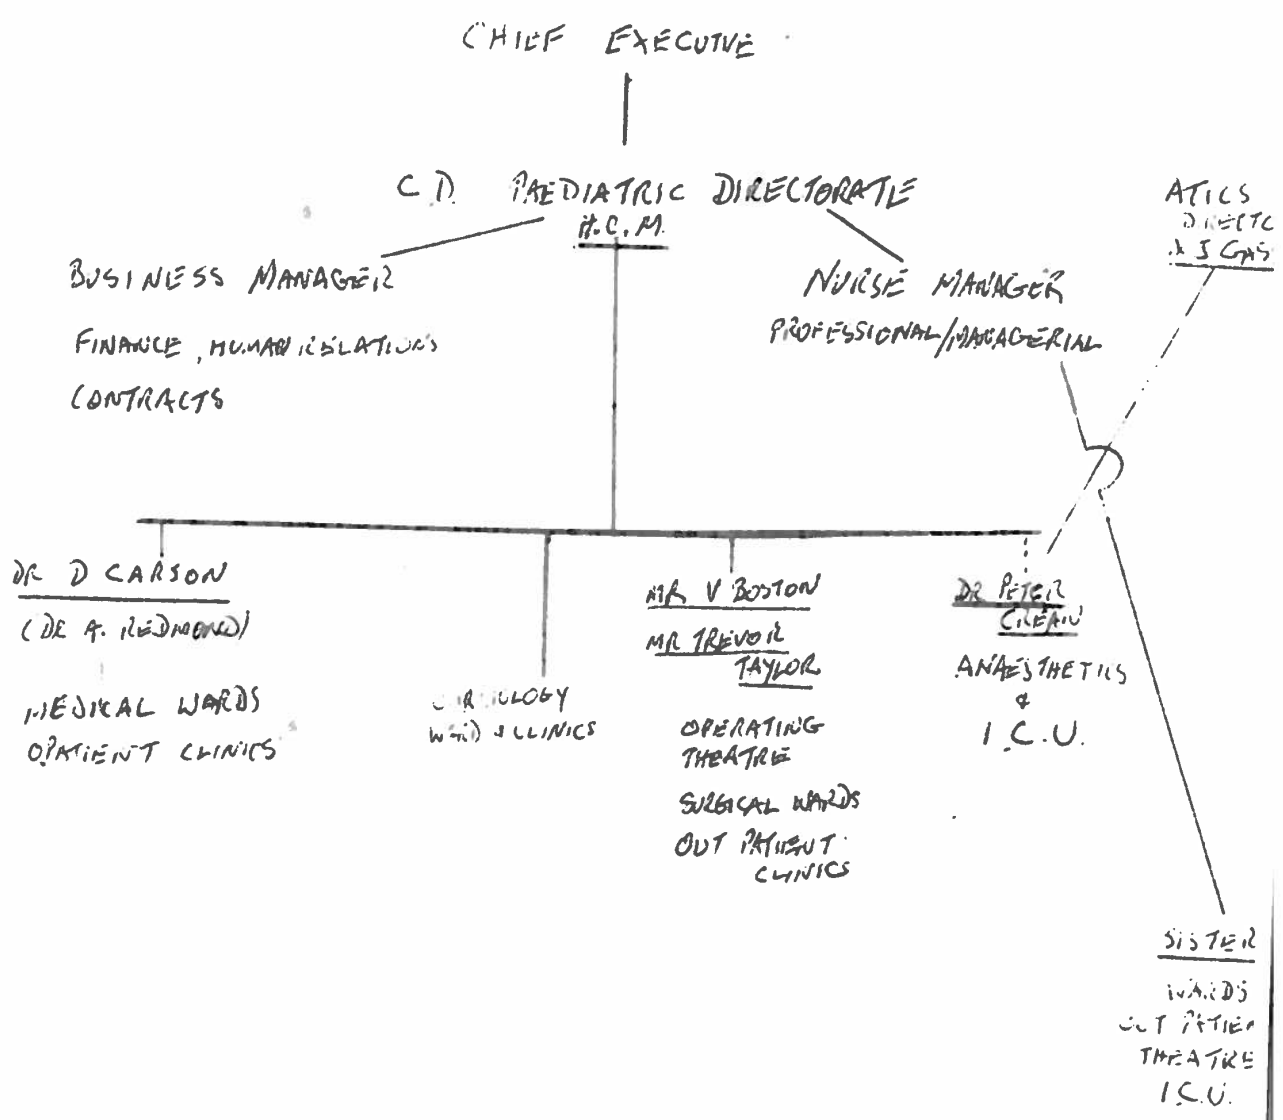 CHIEF EXECUTIVE
C.D. PAEDIATRIC DIRECTORATE
H.C.M.
ATICS
DIRECTO
BUSINESS MANAGER
FINANCE, HUMAN RELATIONS
CONTRACTS
NURSE MANAGER
PROFESSIONAL/MANAGERIAL
DR D CARSON
(DR A. REDMOND)
MEDICAL WARDS
OPATIENT CLINICS
WARD & CLINICS
MR V BOSTON
MR TREVOR
TAYLOR
OPERATING
THEATRE
SURGICAL WARDS
OUT PATIENT
CLINICS
DR PETER
CREAN
ANAESTHETICS
&
I.C.U.
SISTER
WARDS
OUT PATIEN
THEATRE
I.C.U.